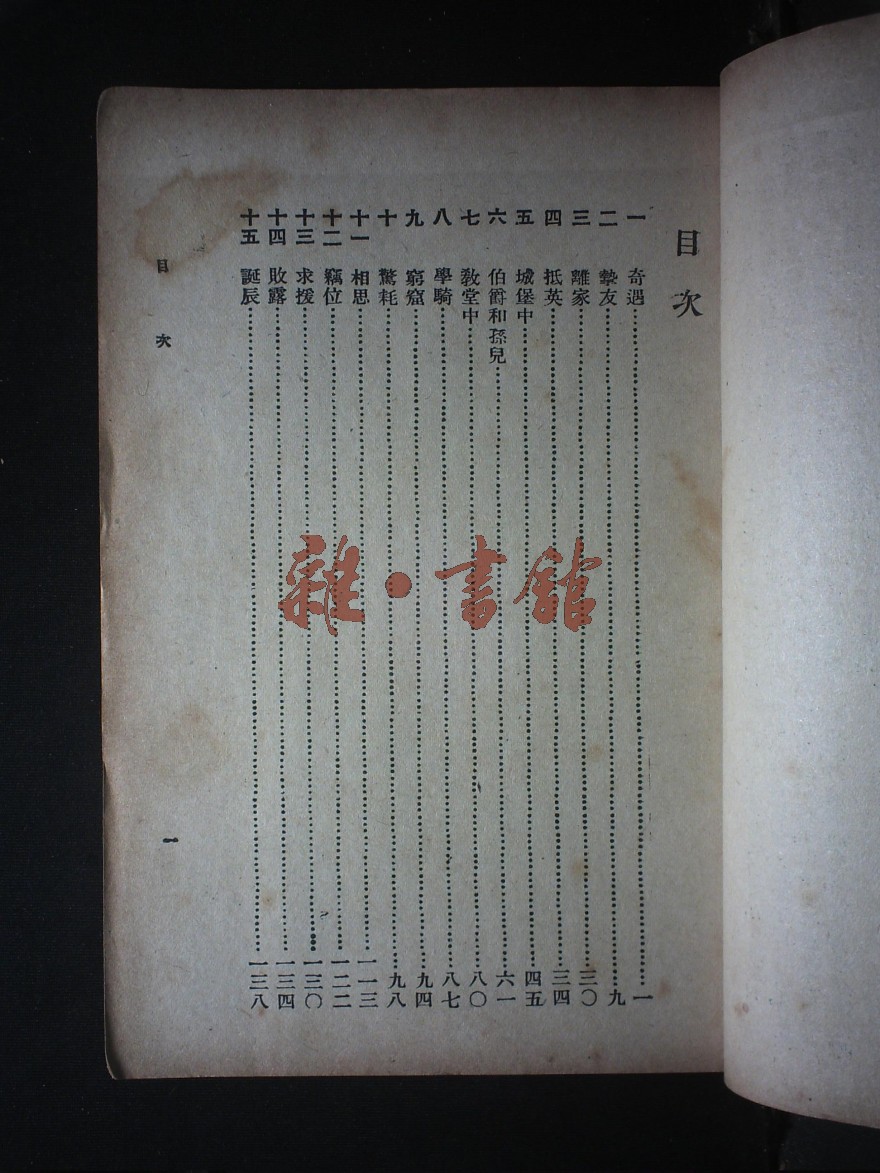 目次
一 奇遇……一
二 摯友……九
三 離家……三〇
四 抵英……三四
五 城堡中……四五
六 伯爵和孫兒……六一
七 教堂中……八〇
八 學騎……八七
九 窮窟……九四
十 驚耗……九八
十一 相思……一一三
十二 竊位……一二二
十三 求援……一三〇
十四 敗露……一三四
十五 誕辰……一三八
目次 一
雜·書館